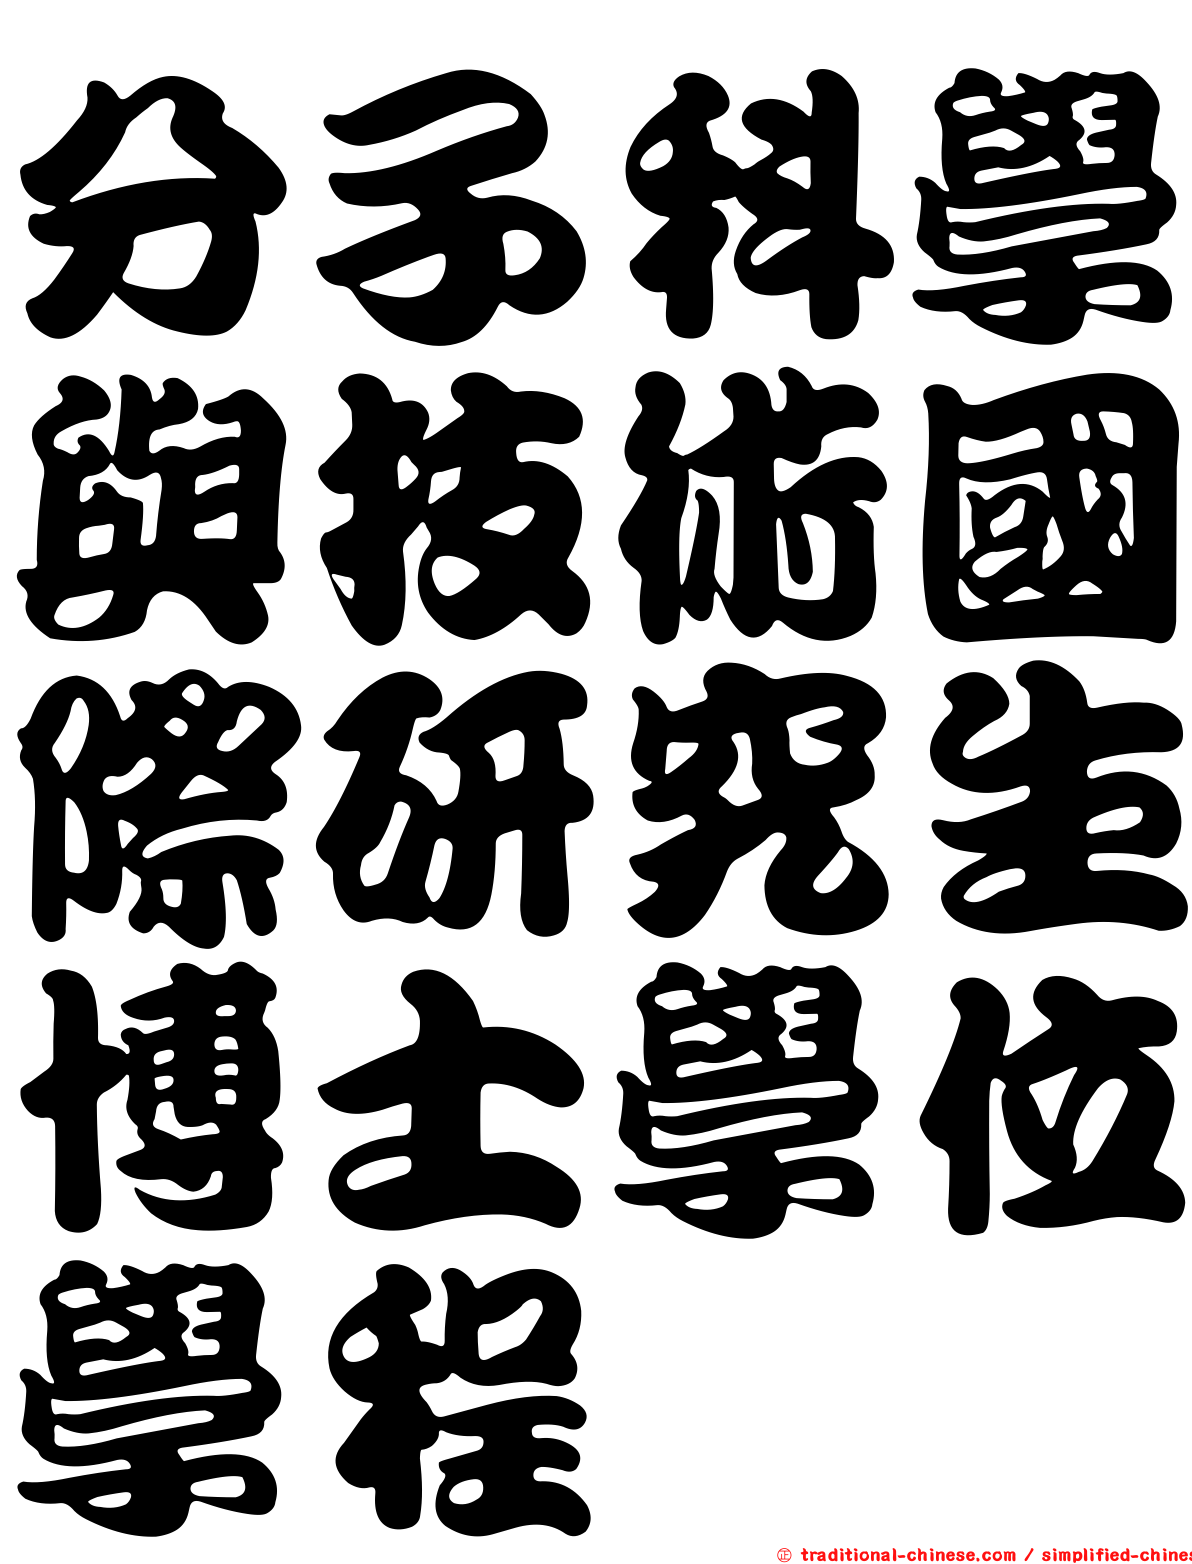 分子科學
與技術國
際研究生
博士學位
學程
㊣ traditional-chinese.com / simplified-chines